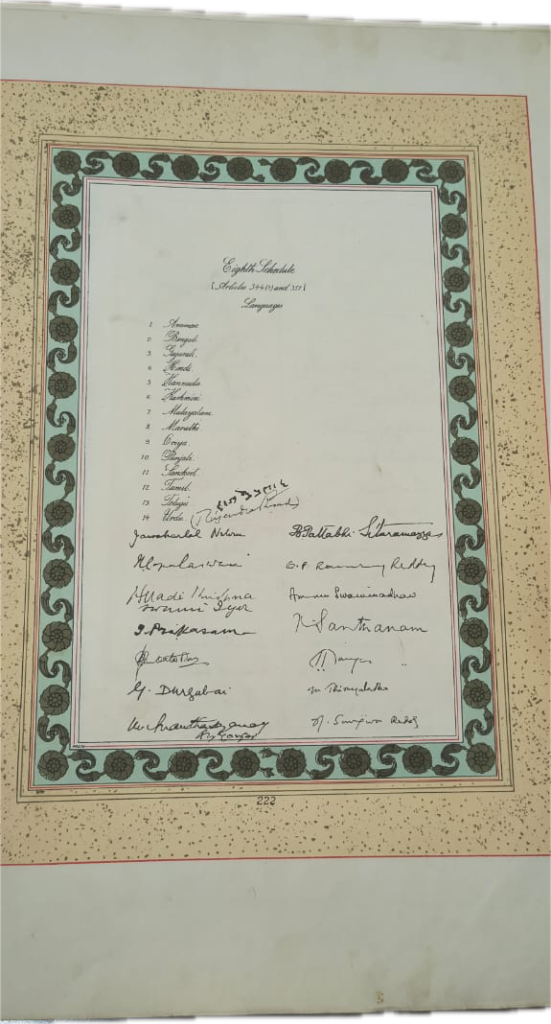 Eighth Schedule
[Articles 344(1) and 351]
Languages
1 Assamese.
2 Bengali.
3 Gujarati.
4 Hindi.
5 Kannada.
6 Kashmiri.
7 Malayalam.
8 Marathi.
9 Oriya.
10 Punjabi.
11 Sanskrit.
12 Tamil.
13 Telugu.
14 Urdu.
(Rajendra Prasad)
Jawaharlal Nehru B Pattabhi Sitaramayya
Alladi Krishna
swami Iyer Ammu Swaminadhan
T. Prakasam K Santhanam
G. Durgabai
222